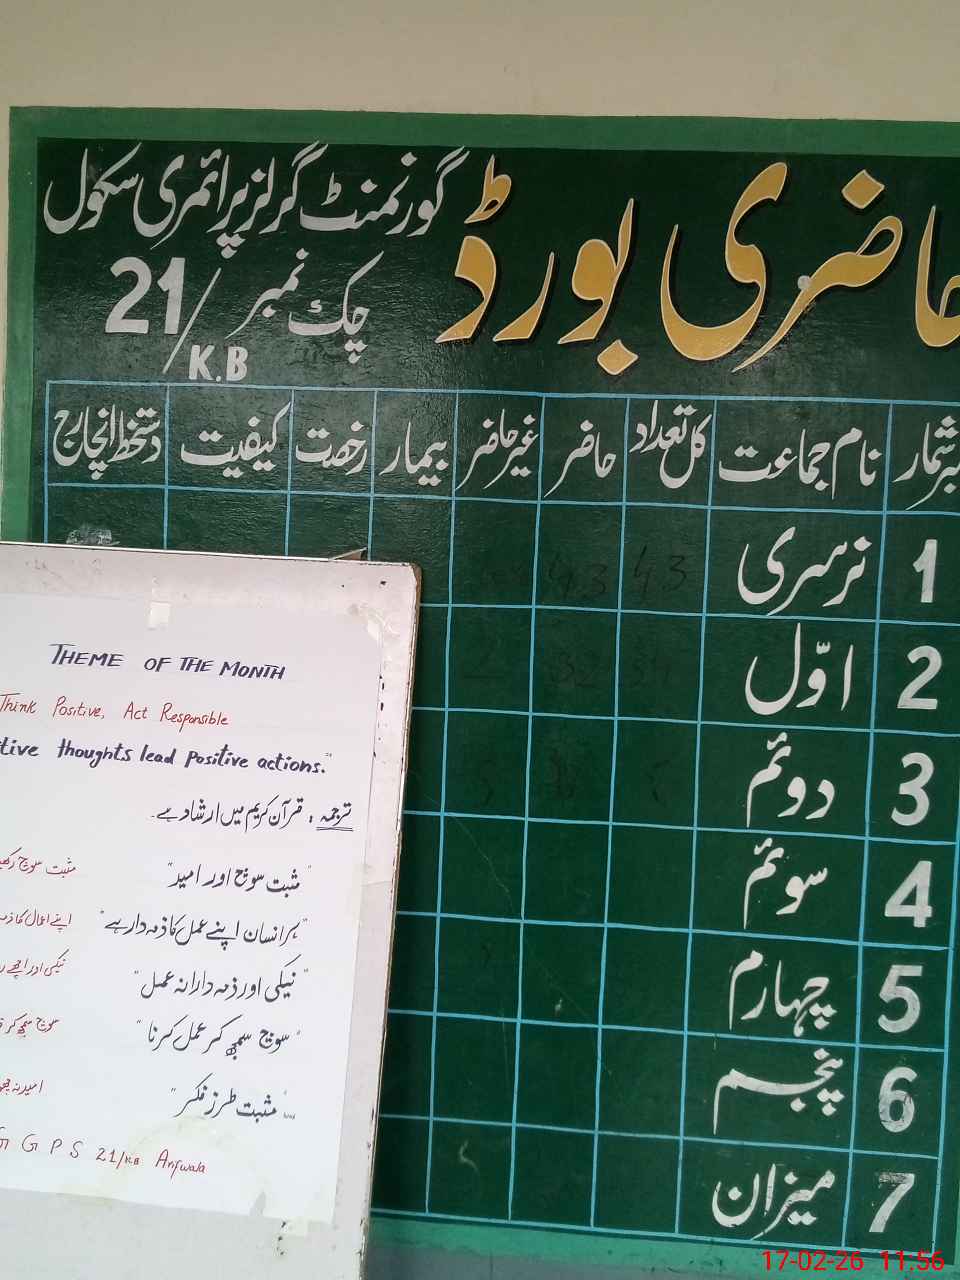 حاضری بورڈ
گورنمنٹ گرلز پرائمری سکول
چک نمبر 21/
K.B
نام جماعت کل تعداد حاضر غیر حاضر بیمار رخصت کیفیت دستخط انچارج
1 نرسری 43 43
2 اوّل
3 دوئم
4 سوئم
5 چہارم
6 پنجم
7 میزان
THEME OF THE MONTH
Think Positive, Act Responsible
thoughts lead positive actions."
ترجمہ : قرآن کریم میں ارشاد ہے۔
"مثبت سوچ اور امید"
مثبت سوچ
"ہر انسان اپنے عمل کا ذمہ دار ہے"
اپنے اعمال کا
"نیکی اور ذمہ دارانہ عمل"
نیکی اور اچھے
"سوچ سمجھ کر عمل کرنا"
سوچ سمجھ کر
"مثبت طرز فکر"
G G P S 21/KB Arifwala
17-02-26 11:56